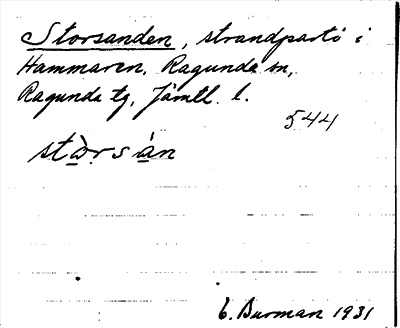 Storsanden, strandparti i
Hammaren, Ragunda sn,
Ragunda tg, Jämtl. l.
544
stòrsàn
E. Burman 1931